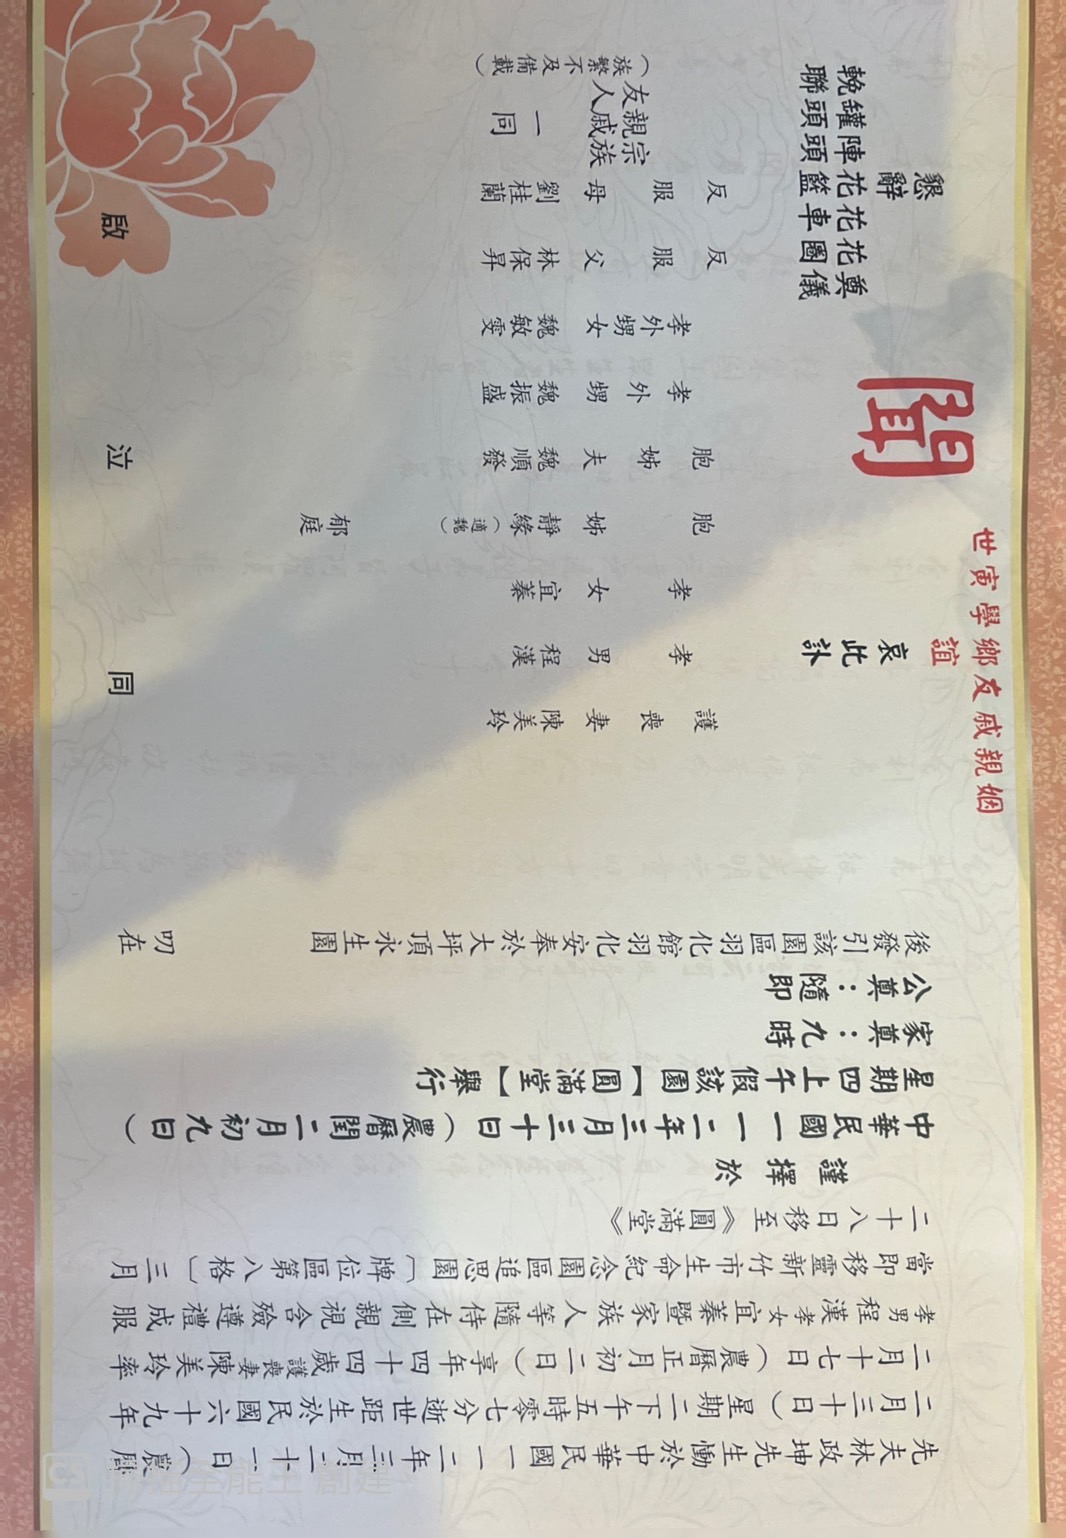 先夫林政坤先生慟於中華民國一一二年三月二十一日(農曆
二月三十日)星期二下午五時零七分逝世距生於民國六十九年
二月十七日(農曆正月初二日)享年四十四歲護喪妻陳美玲率
孝男程漢孝女宜蓁暨家族人等隨侍在側親視含殮遵禮成服
當即移靈新竹市生命紀念園區追思園(牌位區第八格)三月
二十八日移至《圓滿堂》
謹擇於
中華民國一一二年三月三十日(農曆閏二月初九日)
星期四上午假該園【圓滿堂】舉行
家奠:九時
公奠:隨即
後發引該園區羽化館羽化安奉於大坪頂永生園
叨在
姻親戚友鄉學寅世
誼
哀
此
訃
聞
護喪妻陳美玲
孝男程漢
孝女宜蓁
胞姊靜緣(適魏)
郁庭
胞姊夫魏順發
孝外甥魏振盛
孝外甥女魏敏雯
反服父林保昇
反服母劉桂蘭
宗族
親戚
友人
一同
(族繁不及備載)
同泣啟
懇辭
奠儀
花圈
花車
花籃
陣頭
罐頭
輓聯